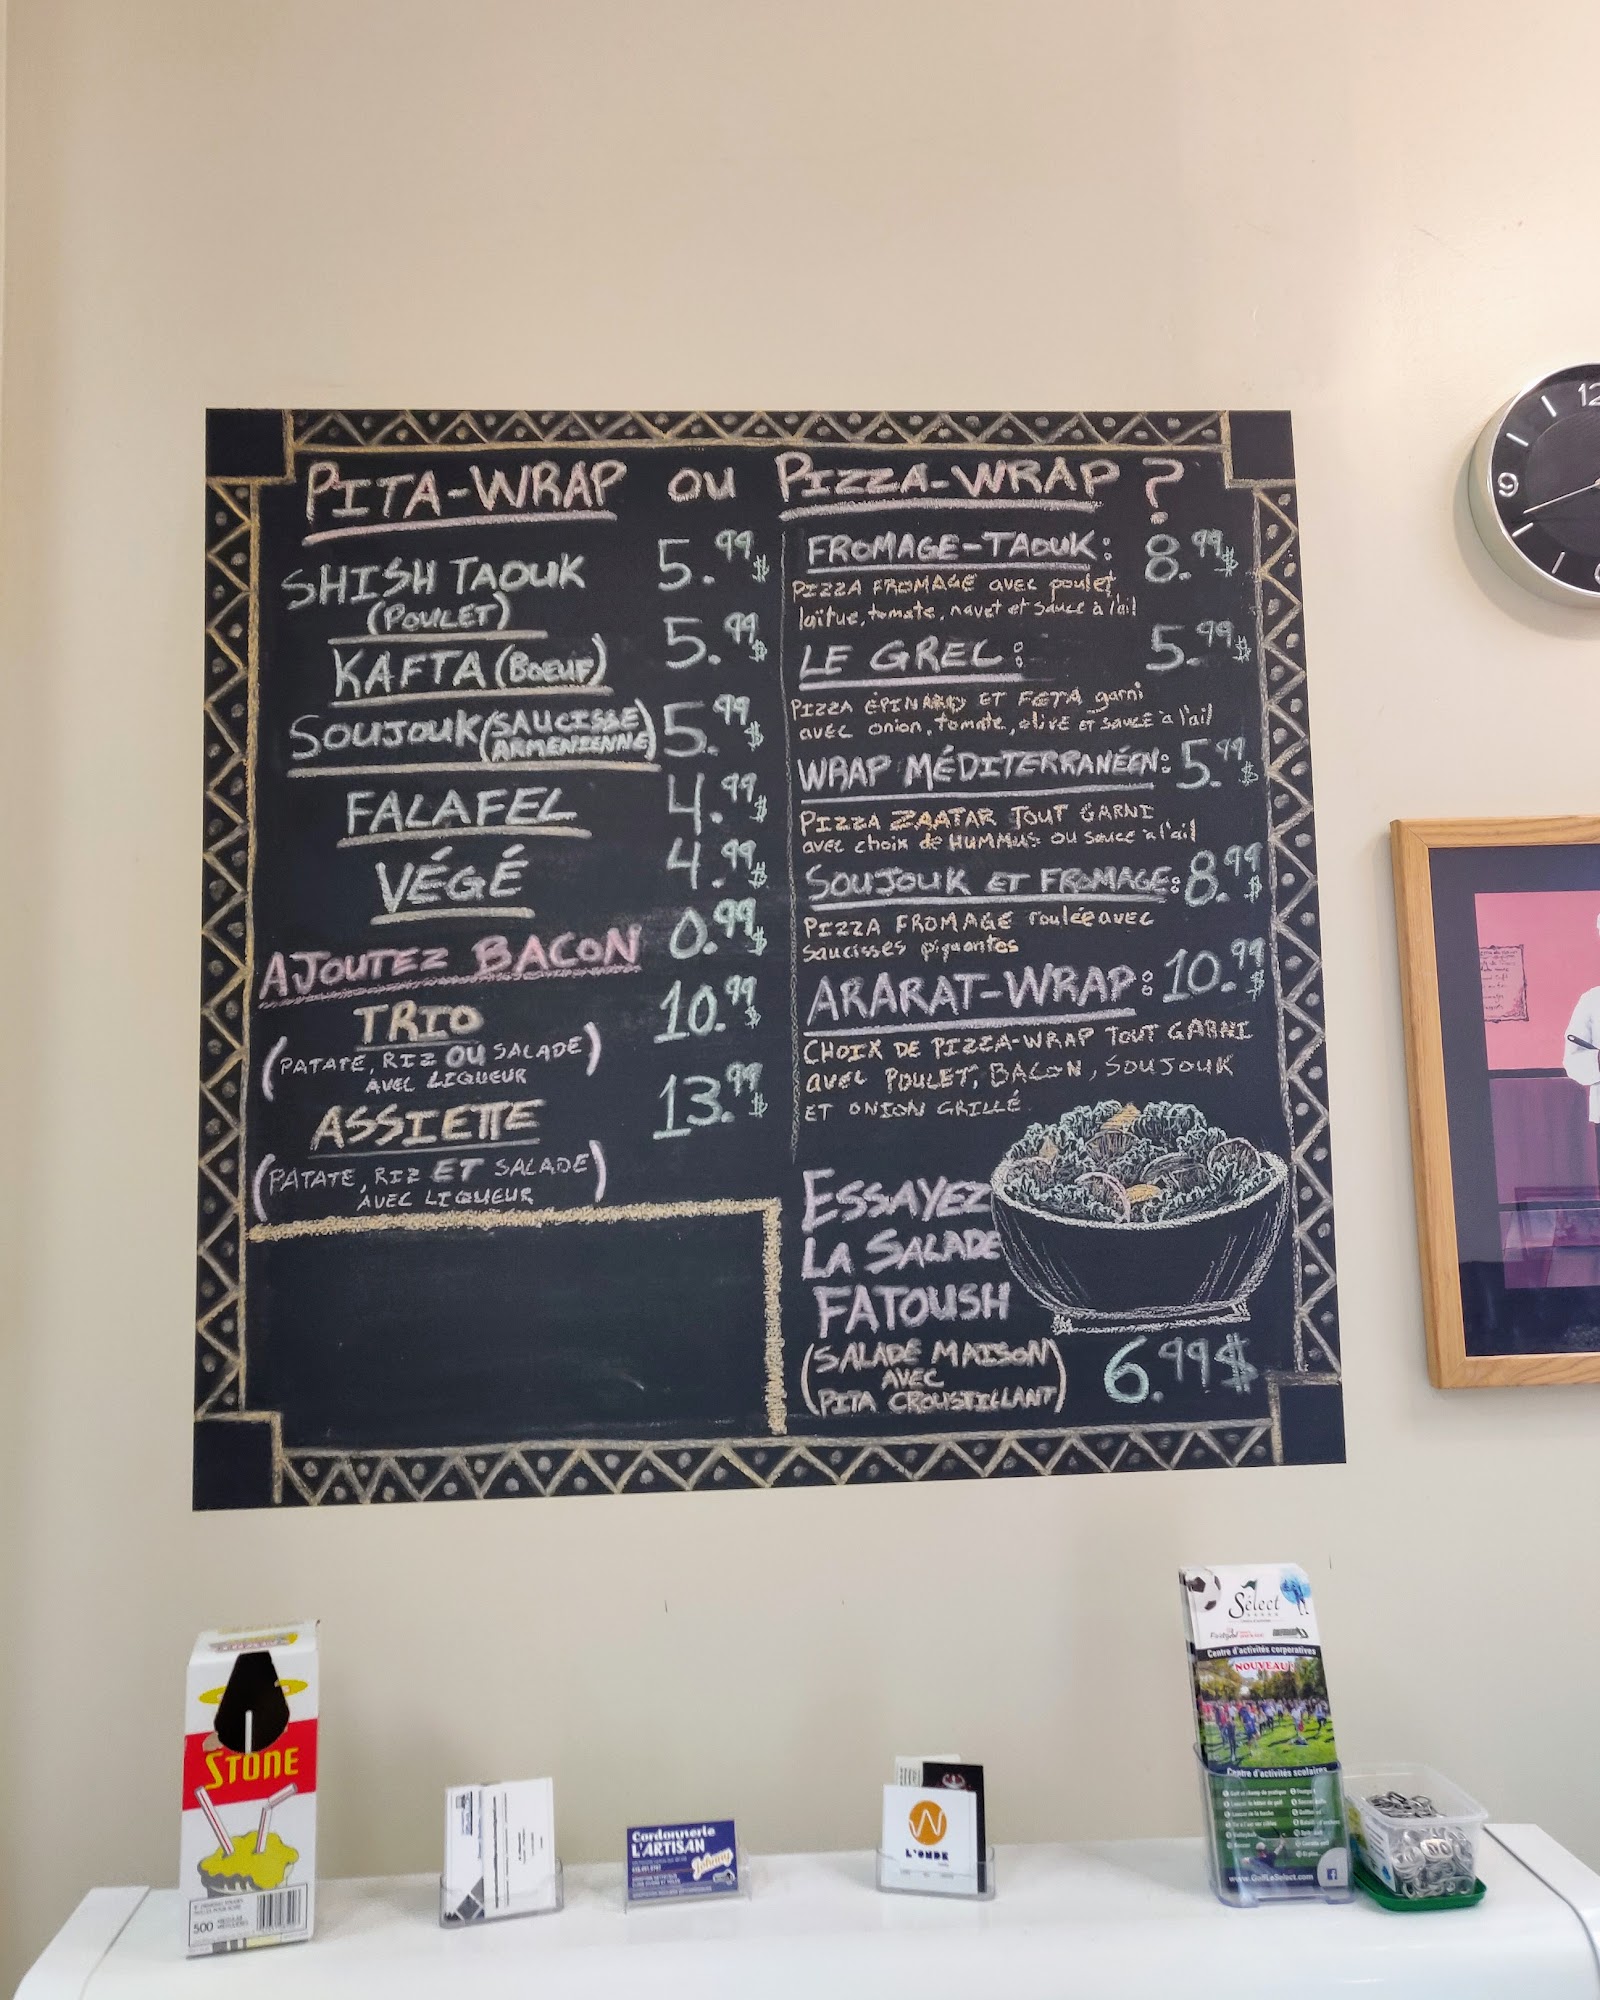 PITA-WRAP OU PIZZA-WRAP ?
SHISH TAOUK 5.99$
(POULET)
KAFTA (BOEUF) 5.99$
SOUJOUK (SAUCISSE ARMENIENNE) 5.99$
FALAFEL 4.99$
VÉGÉ 4.99$
AJOUTEZ BACON 0.99$
TRIO 10.99$
(PATATE, RIZ OU SALADE)
AVEC LIQUEUR
ASSIETTE 13.99$
(PATATE, RIZ ET SALADE)
AVEC LIQUEUR
FROMAGE-TAOUK: 8.99$
PIZZA FROMAGE avec poulet,
laitue, tomate, navet et sauce à l'ail
LE GREC: 5.99$
PIZZA ÉPINARD ET FETA garni
avec onion, tomate, olive et sauce à l'ail
WRAP MÉDITERRANÉEN: 5.99$
PIZZA ZAATAR TOUT GARNI
avec choix de HUMMUS ou sauce à l'ail
SOUJOUK ET FROMAGE: 8.99$
PIZZA FROMAGE roulée avec
saucisses piquantes
ARARAT-WRAP: 10.99$
CHOIX DE PIZZA-WRAP TOUT GARNI
avec POULET, BACON, SOUJOUK
ET ONION GRILLÉ
ESSAYEZ
LA SALADE
FATOUSH
(SALADE MAISON
AVEC
PITA CROUSTILLANT)
6.99$
12
9
STONE
500
Cordonnerie
L'ARTISAN
Johnny
L'ONDE
Sélect
Centre d'activités corporatives
NOUVEAU!
Centre d'activités scolaires
www.GolfLeSelect.com